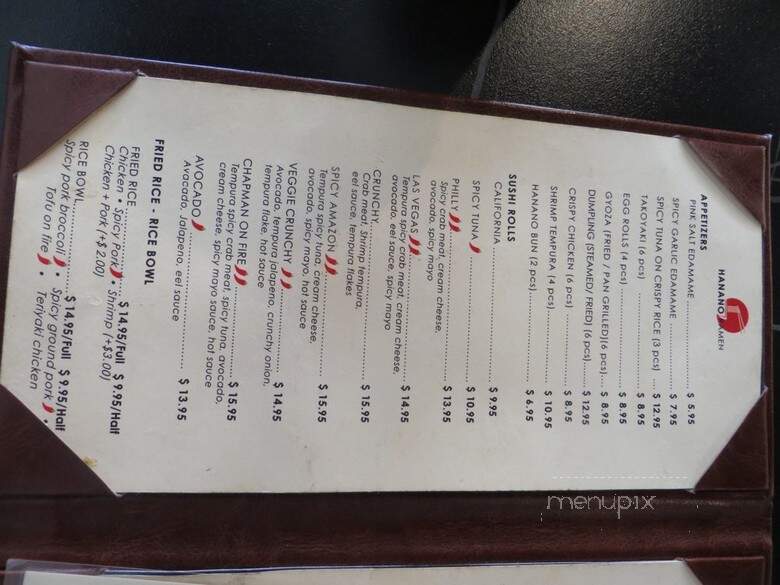 HANANO RAMEN
APPETIZERS
PINK SALT EDAMAME ............ $ 5.95
SPICY GARLIC EDAMAME $ 7.95
SPICY TUNA ON CRISPY RICE (3 pcs) .... $ 12.95
TAKOYAKI (6 pcs) ............ $ 8.95
EGG ROLLS (4 pcs) ............ $ 8.95
GYOZA (FRIED / PAN GRILLED)(6 pcs).... $ 8.95
DUMPLING (STEAMED/ FRIED) (6 pcs)..... $ 12.95
CRISPY CHICKEN (6 pcs) ............ $ 8.95
SHRIMP TEMPURA (4 pcs) ............ $ 10.95
HANANO BUN (2 pcs)............ $ 6.95
SUSHI ROLLS
CALIFORNIA ............ $ 9.95
SPICY TUNA ............ $ 10.95
PHILLY ............ $ 13.95
Spicy crab meat, cream cheese,
avocado, spicy mayo
LAS VEGAS ............ $ 14.95
Tempura spicy crab meat, cream cheese,
avocado, eel sauce, spicy mayo
CRUNCHY ............ $ 15.95
Crab meat, Shrimp tempura,
eel sauce, tempura flakes
SPICY AMAZON ............ $ 15.95
Tempura spicy tuna, cream cheese,
avocado, spicy mayo, hot sauce
VEGGIE CRUNCHY ............ $ 14.95
Avocado, tempura jalapeno, crunchy onion,
tempura flake, hot sauce
CHAPMAN ON FIRE ............ $ 15.95
Tempura spicy crab meat, spicy tuna, avocado,
cream cheese, spicy mayo sauce, hot sauce
AVOCADO ............ $ 13.95
Avocado, Jalapeno, eel sauce
FRIED RICE - RICE BOWL
FRIED RICE............ $ 14.95/Full $ 9.95/Half
Chicken • Spicy Pork • Shrimp (+$3.00)
Chicken + Pork (+$ 2.00)
RICE BOWL............ $ 14.95/Full $ 9.95/Half
Spicy pork broccoli • Spicy ground pork •
Tofu on fire • Teriyaki chicken
menupix